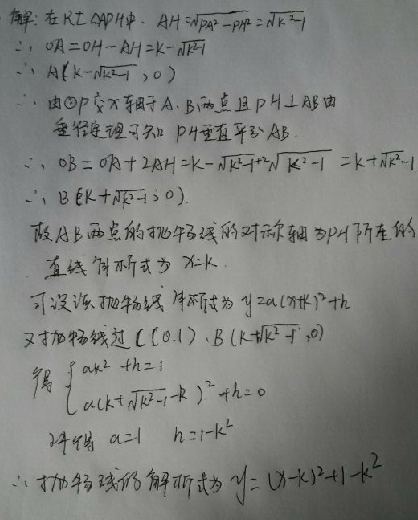 解: 在Rt△APH中. AH=√PA²-PH²=√k²-1
∴ OA=OH-AH=k-√k²-1
∴ A(k-√k²-1,0)
∵ 由⊙P交x轴于A.B两点且PH⊥AB由
垂径定理可知 PH垂直平分AB.
∴ OB=OA+2AH=k-√k²-1+2√k²-1=k+√k²-1
∴ B(k+√k²-1,0).
故A B两点的抛物线的对称轴为PH所在的
直线 解析式为 x=k.
可设该抛物线解析式为 y=a(x-k)²+h
又抛物线过C(0.1)、B(k+√k²-1,0)
得 { ak²+h=1
a(k+√k²-1-k)²+h=0
解得 a=1 h=1-k²
∴ 抛物线的解析式为 y=(x-k)²+1-k²